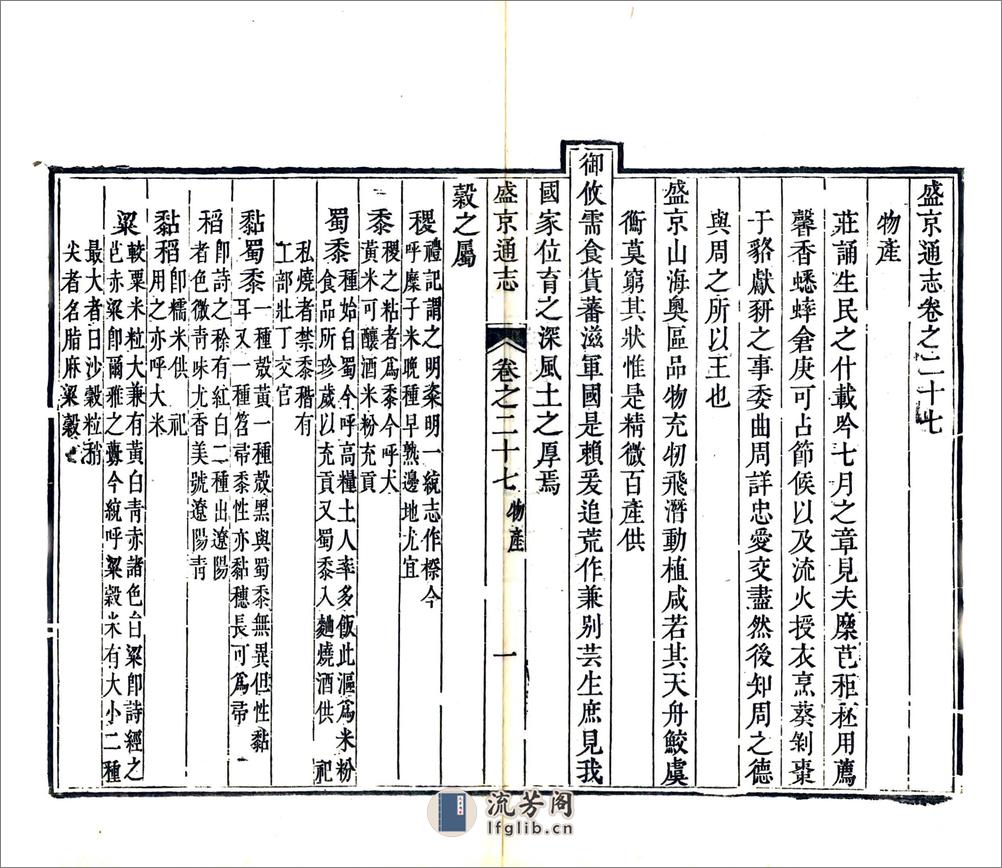 盛京通志卷之二十七
物產
莊誦生民之什載吟七月之章見夫穈芑秬秠用薦
馨香蟋蟀倉庚可占節候以及流火授衣烹葵剝棗
于貉獻豜之事委曲周詳忠愛交盡然後知周之德
與周之所以王也
盛京山海奧區品物充牣飛潛動植咸若其天舟鮫虞
衡莫窮其狀惟是精微百產供
御攸需食貨蕃滋軍國是賴爰追荒作兼别芸生庶見我
國家位育之深風土之厚焉
盛京通志 卷之二十七 物產 一
穀之屬
稷 禮記謂之明粢明一統志作穄今
呼糜子米晚種早熟邊地尤宜
黍 稷之粘者爲黍今呼大
黃米可釀酒米粉充貢
蜀黍 種始自蜀今呼高糧土人率多飯此漚爲米粉
食品所珍歲以充貢又蜀黍入麯燒酒供 祀
私燒者禁黍稭有
工部壯丁交官
黏蜀黍 一種殼黃一種殼黑與蜀黍無異但性黏
耳又一種笤帚黍性亦黏穗長可爲帚
稻 卽詩之稌有紅白二種出遼陽
者色微靑味尤香美號遼陽靑
黏稻 卽糯米供 祀
祭用之亦呼大米
粱 較粟米粒大兼有黃白青赤諸色白粱卽詩經之
芑赤粱卽爾雅之虋今統呼粱穀米有大小二種
最大者曰沙穀粒稍
尖者名脂麻粱穀
流芳阁
lfglib.cn